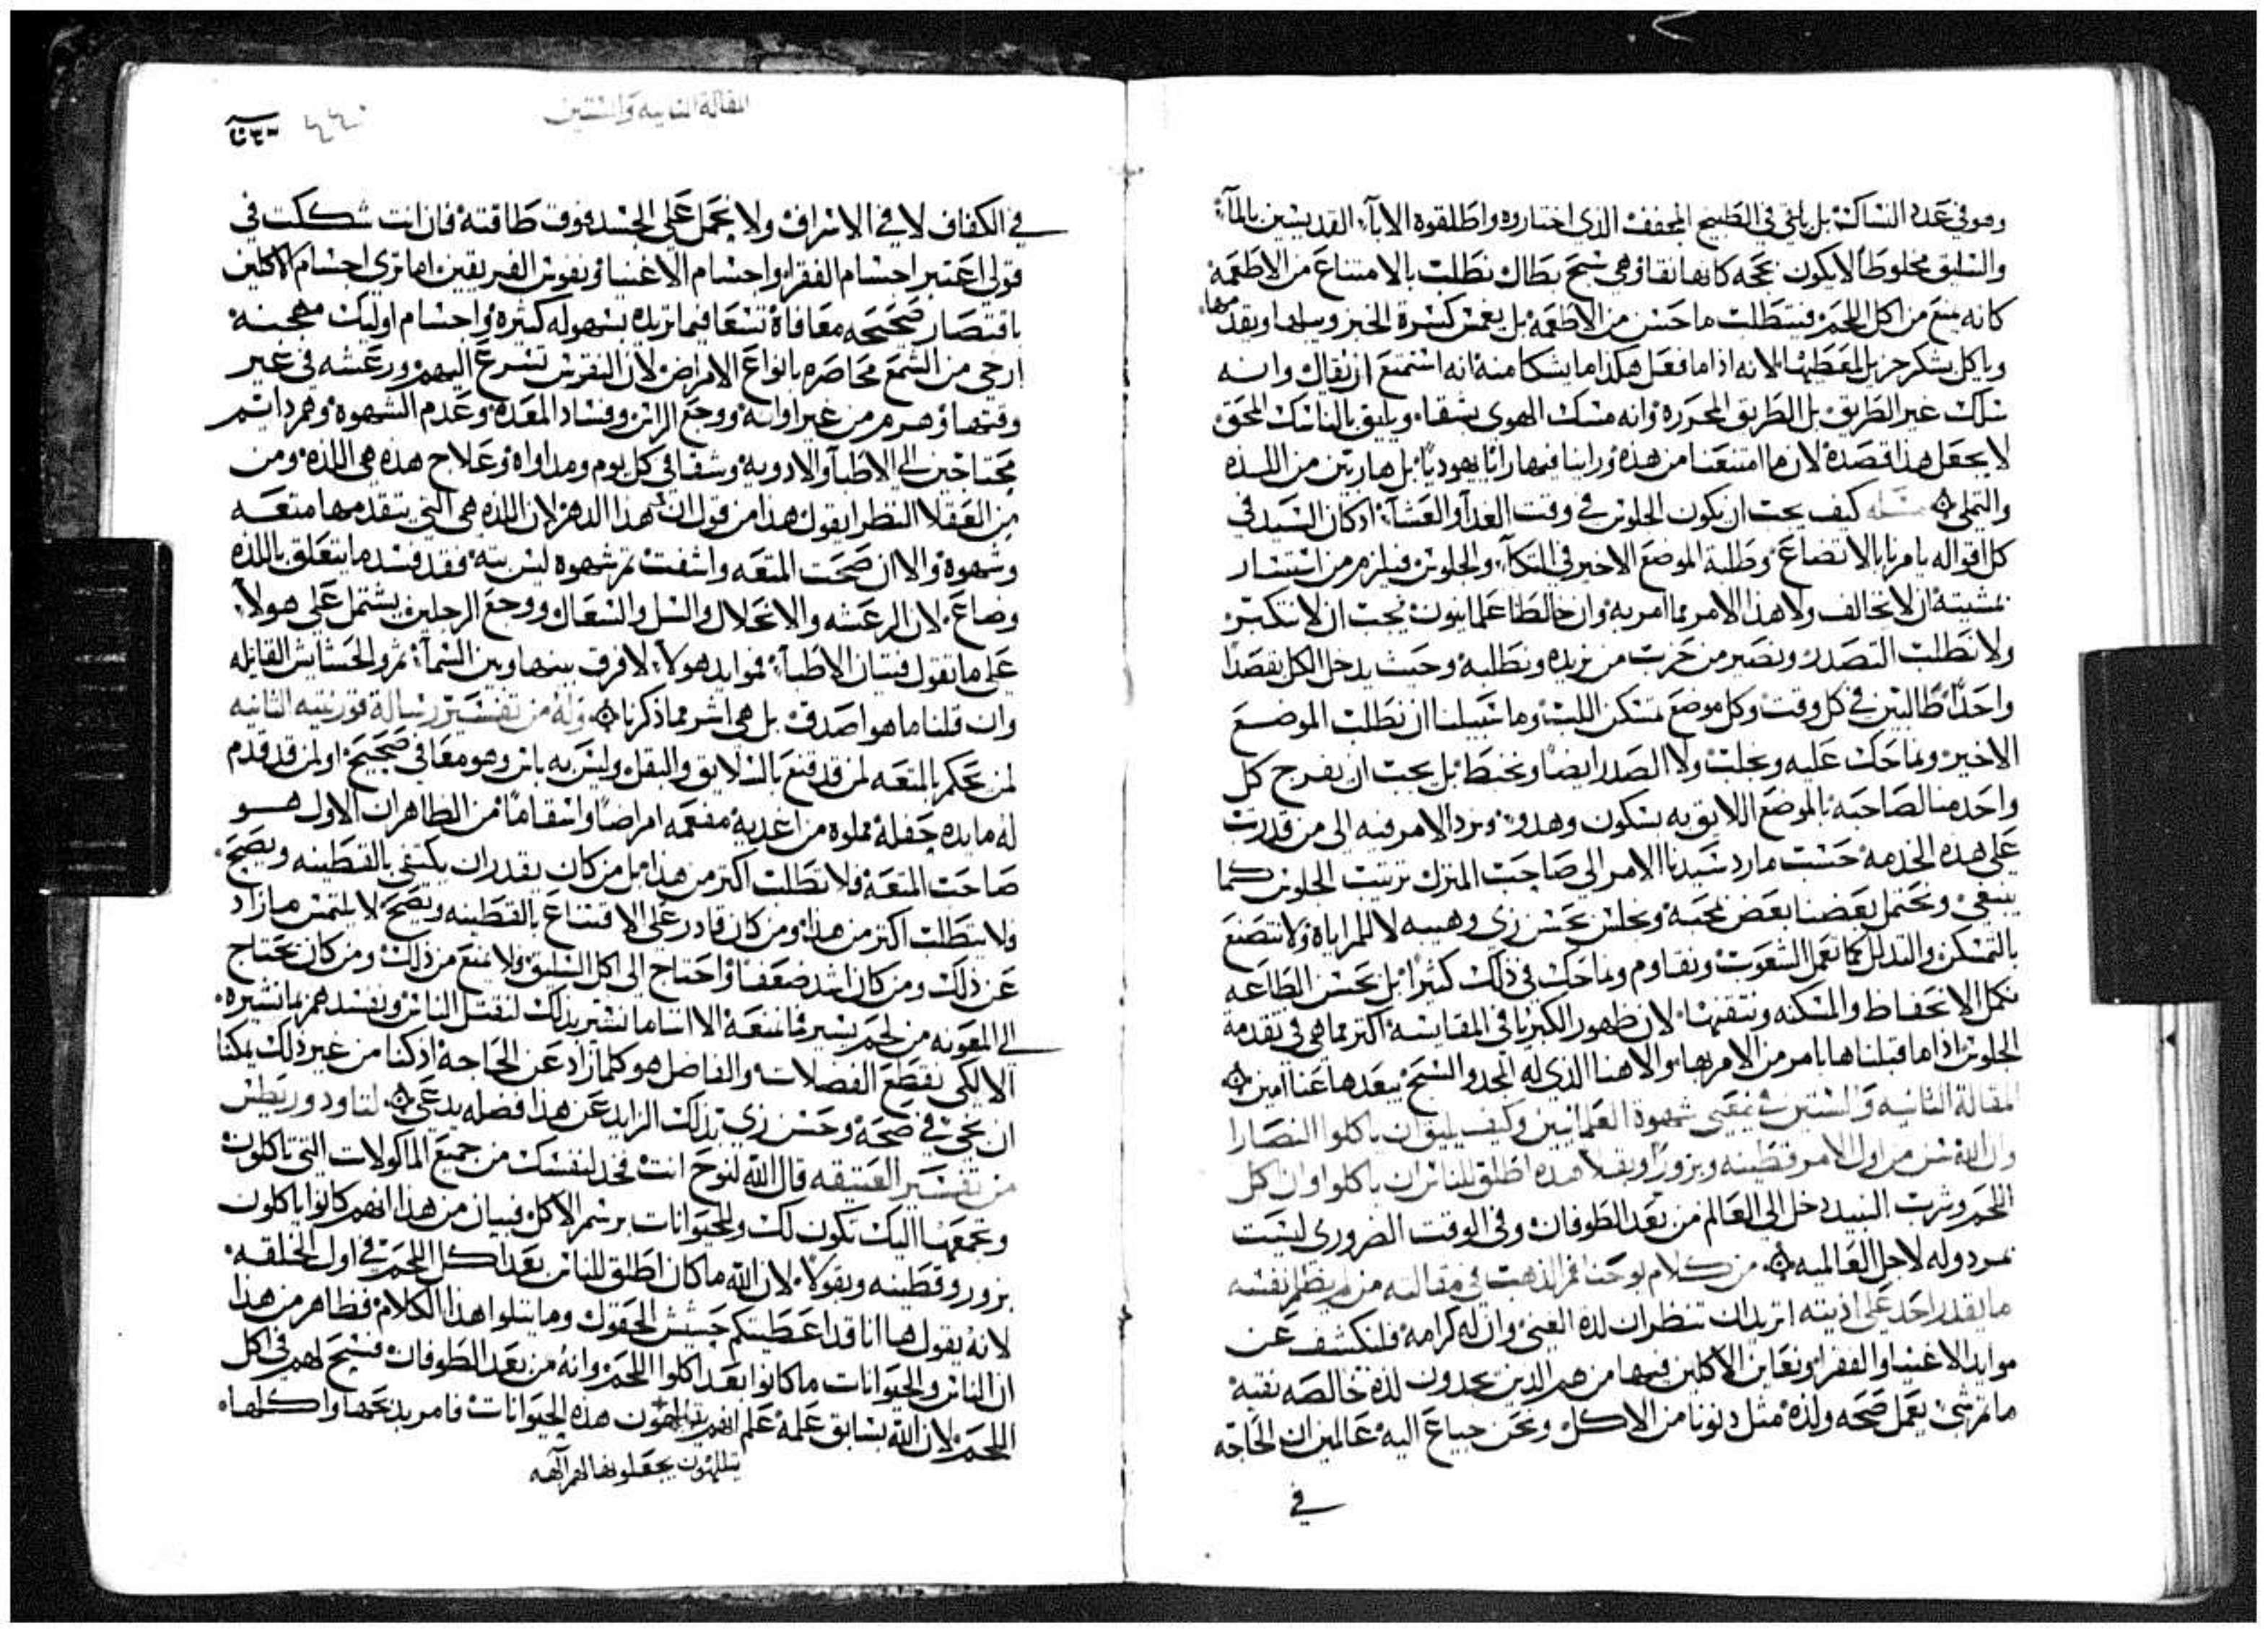 وهو في عدد النساك بل يلقي في الطبيخ المجفف الذي اختاروه واطلقوه الاباء القديسين بالماء
والسليق مخلوطا لا يكون بحجه كانها نقاوهي شبح بطال نطلب بالامتناع من الاطعمه
كانه يمنع من اكل اللحم فيتطلب ما حسن من الاطعمه بل يغمس كسرة الخبز ويبلها ويقدمها
وياكل بشكر جزيل لمعطيها لانه اذا ما فعل هكذا ما يشكا منه انه استمتع ان يقال وانه
سلك غير الطريق بل الطريق المحرره وانه مسك الهوى بشقاء ويليق بالناسك المحق
لا يجعل هذا قصده لاننا امتنعنا من هذه وراينا فيها رايا يهوديا بل هاربين من اللذه
والتملي مسله كيف يجب ان يكون الجلوس في وقت الغدا والعشاء اذ كان السيد في
كل اقواله يامرنا بالاتضاع وطلبة الموضع الاخير في المتكاء والجلوس فيلزم من استسار
بمشيته ان لا يخالف ولا هذا الامر مما امر به وان خالطنا علمانيون يجب ان لا نتكبر
ولا نطلب التصدر ونصير من حزب من يريده ونطلبه وحيث يدخل الكل بقصدا
واحدا طالبين في كل وقت وكل موضع تمسكن اللبث وما سبيلنا ان نطلب الموضع
الاخير ونماحك عليه ونجلب ولا الصدر ايضا ونختطا بل يجب ان يفرج كل
واحد منا لصاحبه بالموضع اللايق به بسكون وهدو ونرد الامر فيه الى من قدرت
على هذه الخدمه حسب ما رد سيدنا الامر الى صاحب المنزل ترتيب الجلوس كما
ينبغي ونحتمل بعضنا بعض بمحبه ونجلس بحسن زي وهيبه لا للمراياة ولا نتصنع
بالتمسكن والتذلل كما نعمل الشعوب ونقاوم ونماحك في ذلك كثيرا بل بحسن الطاعه
نكمل الانحفاظ والمسكنه ونتقنها لان ظهور الكبريا في المقايسه اكثر مما هي في تقدمة
الجلوس اذا ما قبلناها بامر من الامر بها والاهنا الذي له المجد والسبح يبعدها عنا امين
المقالة الثانيه والستين في معنى شهوة العلمانيين وكيف يليق ان ياكلوا النصارا
وان الله سن من اول الامر قطينه وبزورا وبقلا هذه اطلق للناس ان ياكلوا وان اكل
اللحم وشرب النبيد دخل الى العالم من بعد الطوفان وفي الوقت الضروري ليست
بمردوله لاجل العالميه من كلام يوحنا فم الذهب في مقالته من لم يظلم نفسه
ما يقدر احد على اذيته اتريد ان تنظر ان لذة الغني وان له كرامه فلنكشف عن
موايد الاغنيا والفقرا ونعاين الاكلين فيها من هم الذين يجدون لذة خالصه نقيه
ما ثم شي يعمل صحه ولذه مثل دنونا من الاكل ونحن جياع اليه عالمين ان الحاجه
في
المقالة الثانيه والستين
في الكفاف لا في الاسراف ولا يحمل على الجسد فوق طاقته فان انت شككت في
قولي اعتبر اجسام الفقرا واجسام الاغنيا ونفوس الفريقين اما ترى اجسام الاكلين
باقتصار صحيحه معافاة تسعا فيما تريده بسهوله كثيره واجسام اوليك مهجنه
ارخى من الشمع محاصره بانواع الامراض لان النقرس تسرع اليهم ورعشه في غير
وقتها وهرم من غير اوانه ووجع الراس وفساد المعده وعدم الشهوه وهم دايم
محتاجين الى الاطبا والادويه وشقا في كل يوم ومداواة وعلاج هذه هي اللذه ومن
من العقلا النظرا يقول هذا من قول ان هذا الدهر لان اللذه هي التي يتقدمها متعه
وشهوة والا ان صحت المتعه واشفت ثم شهوه ليس بته فقد فسد ما يتعلق باللذه
وضاع لان الرعشه والانحلال والسل والسعال ووجع الرجلين يشتمل على هولاء
على ما تقول فتيان الاطباء فموايد هولاء لا فرق بينها وبين السماء ثم والحشايش القايله
وان قلنا ما هو اصدق بل هي اشر مما ذكرنا وله من تفسير رسالة قورنتيه الثانيه
لمن تحكم بالمتعه لمن قد قنع بالسلايق والبقل وليس به باس وهو معافى صحيح او لمن قد قدم
له مايده حفله مملوه من اغديه مفعمه امراضا وانتقاما من الظاهر ان الاول هو
صاحب المتعه فلا تطلب اكتر من هذا بل من كان يقدر ان يكتفي بالقطينه ويصح
ولا يتطلب اكتر من هذا ومن كان قادر على الاقتناع بالقطينه ويصح لا يلتمس ما زاد
عن ذلك ومن كان اشد ضعفا واحتاج الى اكل السليق ولا يمنع من ذلك ومن كان يحتاج
الى المعونه من لحم يسير فما نمنعه الا اننا ما نشير بذلك لنقتل الناس ونفسدهم بما نشيره
الا لكي نقطع الفضلات والفاضل هو كلما زاد عن الحاجة اذ كنا من غير ذلك يمكنا
ان نحيى في صحه وحسن زي بذلك الزايد عن هذا فضله يدعى لتاودوريطس
من تفسير العتيقه قال الله لنوح انت فخد لنفسك من جميع الماكولات التي تاكلون
وتجمعها اليك تكون لك وللحيوانات برسم الاكل فيبان من هذا انهم كانوا ياكلون
بزور وقطينه وبقولا لان الله ما كان اطلق للناس بعد اكل اللحم في اول الخلقه
لانه يقول ها انا قد اعطيتكم حشيش الحقول وما يتلوا هذا الكلام فظاهر من هذا
ان الناس والحيوانات ما كانوا بعد اكلوا اللحم وانه من بعد الطوفان فسح لهم في اكل
اللحم لان الله بسابق علمه علم انهم يتالهون هذه الحيوانات فامر بدبحها واكلها
يتالهون يجعلونها لهم الهه